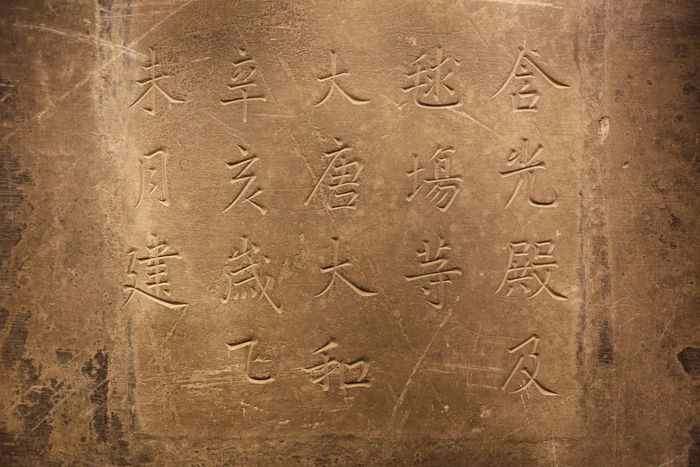 含光殿及
毬塲等
大唐大和
辛亥歳乙
未月建